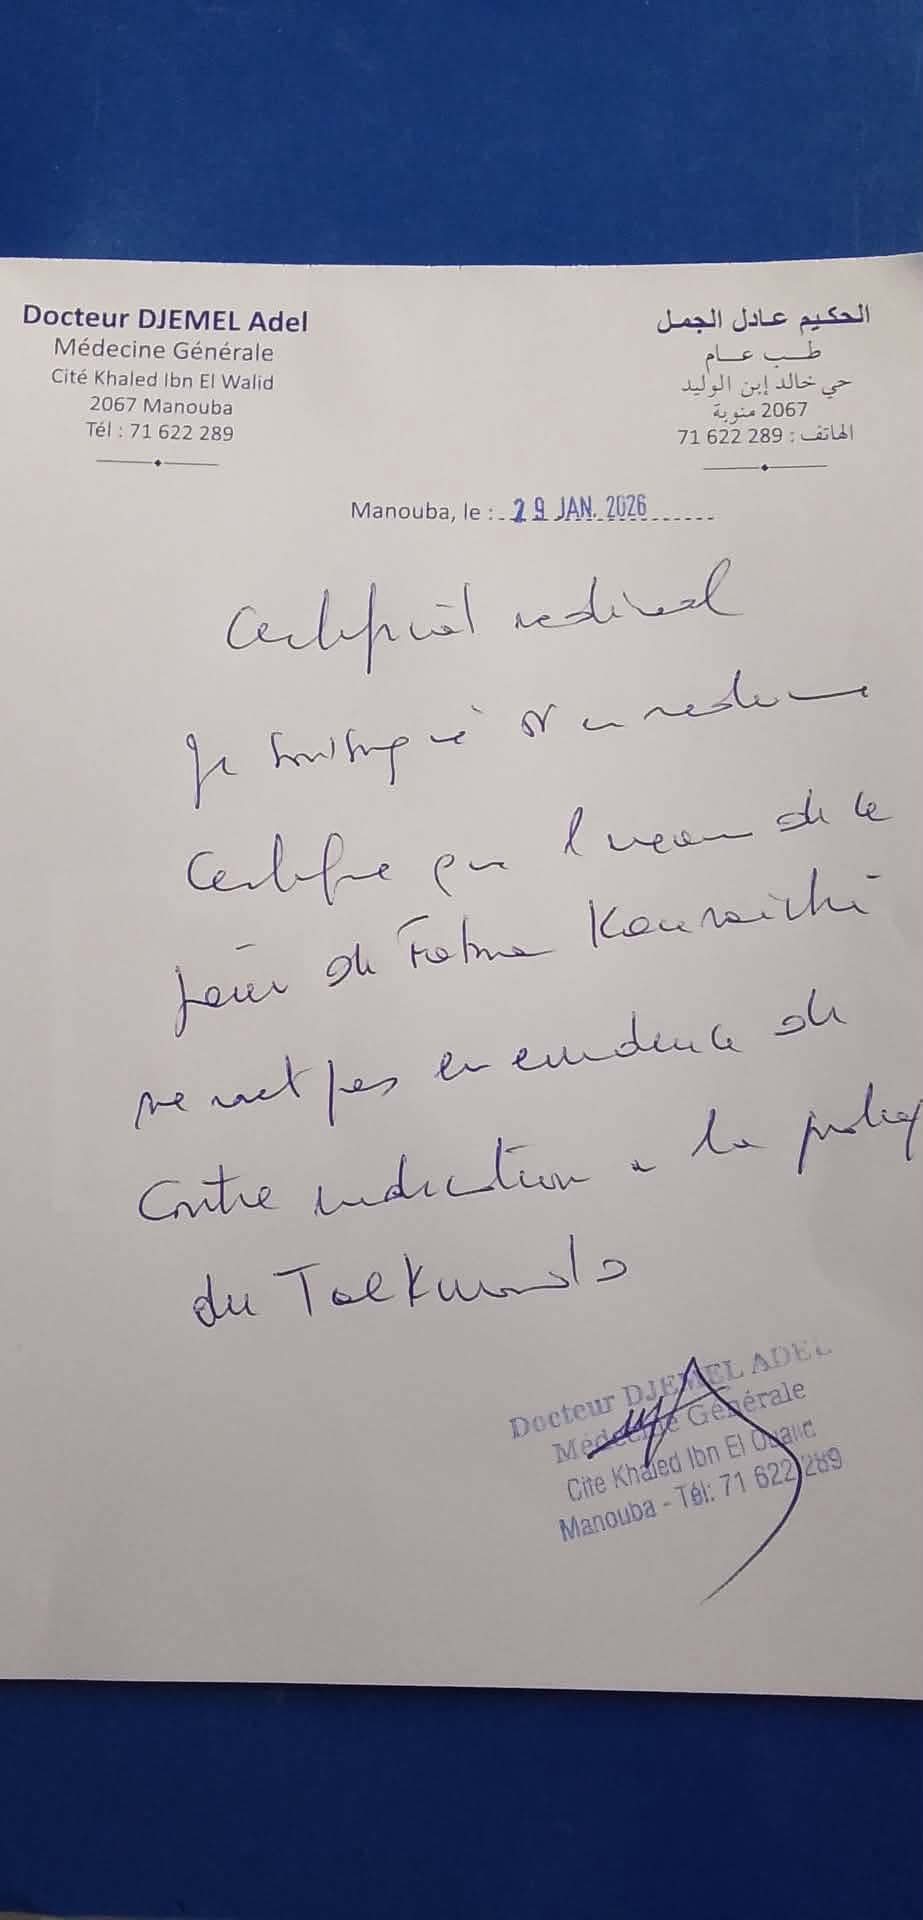 Docteur DJEMEL Adel
Médecine Générale
Cité Khaled Ibn El Walid
2067 Manouba
Tél : 71 622 289
الحكيم عادل الجمل
طب عام
حي خالد إبن الوليد
2067 منوبة
الهاتف : 289 622 71
Manouba, le : 29 JAN. 2026
Certificat médical
Je soussigné Dr en médecine
Certifie que l'examen de ce
jour de Fatma Kouraichi
ne met pas en evidence de
Contre indication a la pratiq
du Taekwondo
Docteur DJEMEL ADEL
Médecine Générale
Cité Khaled Ibn El Oualid
Manouba - Tél: 71 622 289